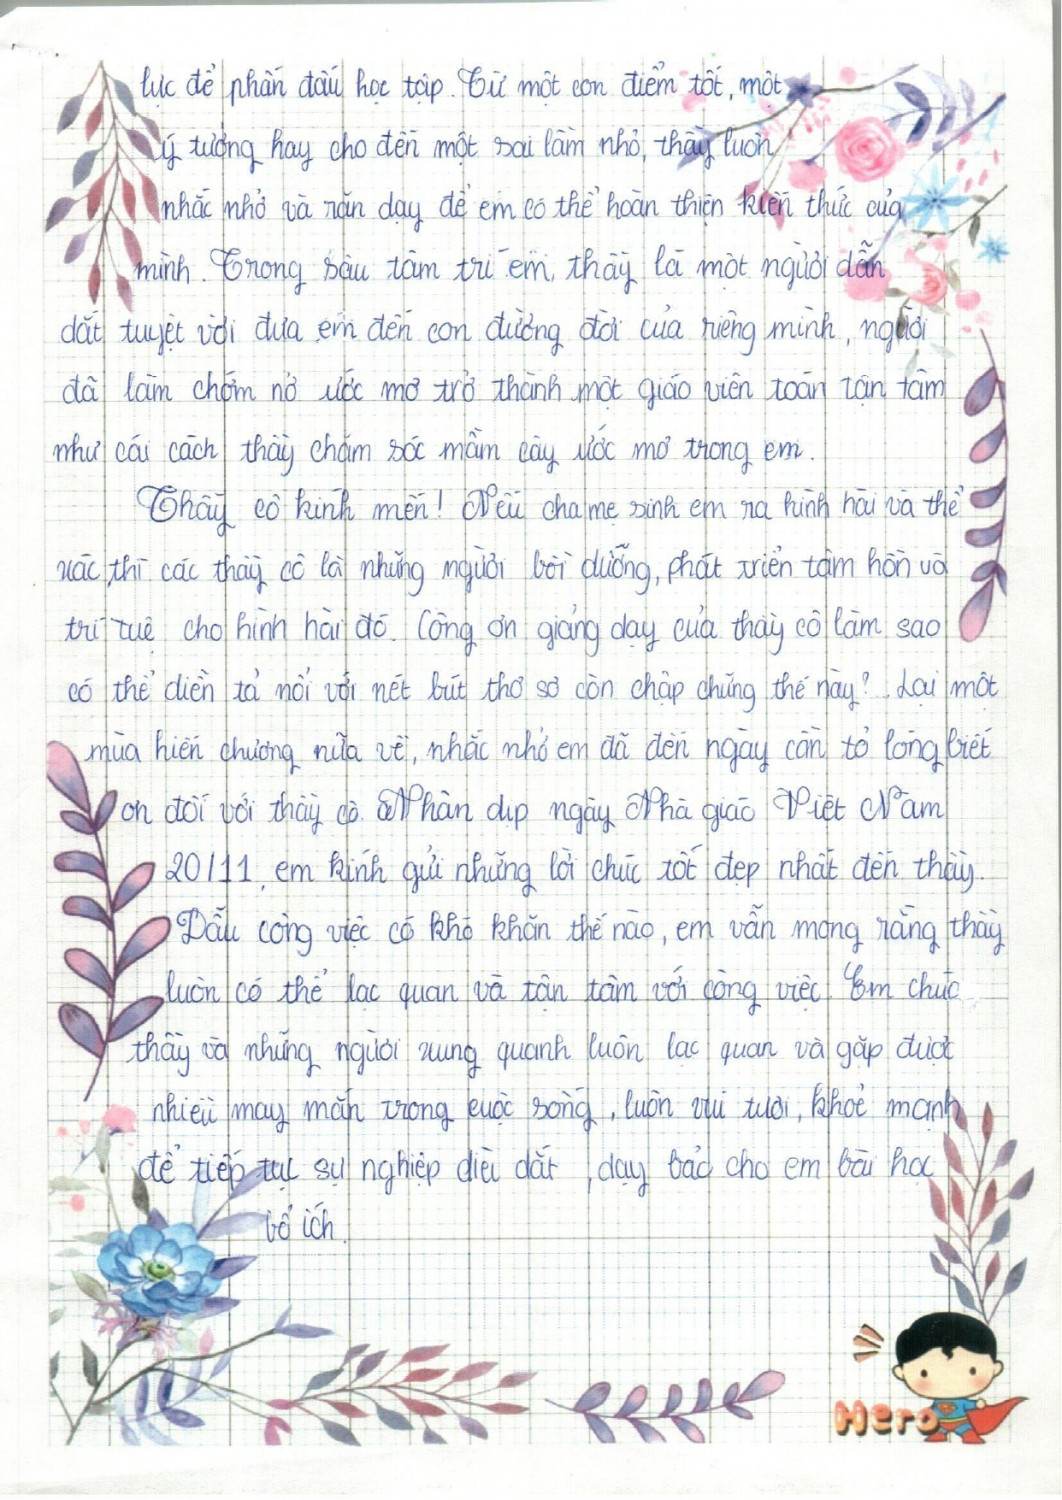 lực để phấn đấu học tập. Từ một con điểm tốt, một
ý tưởng hay cho đến một sai lầm nhỏ, thầy luôn
nhắc nhở và răn dạy để em có thể hoàn thiện kiến thức của
mình. Trong sâu tâm trí em, thầy là một người dẫn
dắt tuyệt vời đưa em đến con đường đời của riêng mình, người
đã làm chớm nở ước mơ trở thành một giáo viên toán tận tâm
như cái cách thầy chăm sóc mầm cây ước mơ trong em.
Thầy cô kính mến! Nếu cha mẹ sinh em ra hình hài và thể
xác, thì các thầy cô là những người bồi dưỡng, phát triển tâm hồn và
trí tuệ cho hình hài đó. Công ơn giảng dạy của thầy cô làm sao
có thể diễn tả nổi với nét bút thơ sơ còn chập chững thế này? Lại một
mùa hiến chương nữa về, nhắc nhở em đã đến ngày cần tỏ lòng biết
ơn đối với thầy cô. Nhân dịp ngày Nhà giáo Việt Nam
20/11, em kính gửi những lời chúc tốt đẹp nhất đến thầy.
Dẫu công việc có khó khăn thế nào, em vẫn mong rằng thầy
luôn có thể lạc quan và tận tâm với công việc. Em chúc
thầy và những người xung quanh luôn lạc quan và gặp được
nhiều may mắn trong cuộc sống, luôn vui tươi, khoẻ mạnh
để tiếp tục sự nghiệp dìu dắt, dạy bảo cho em bài học
bổ ích.
Hero